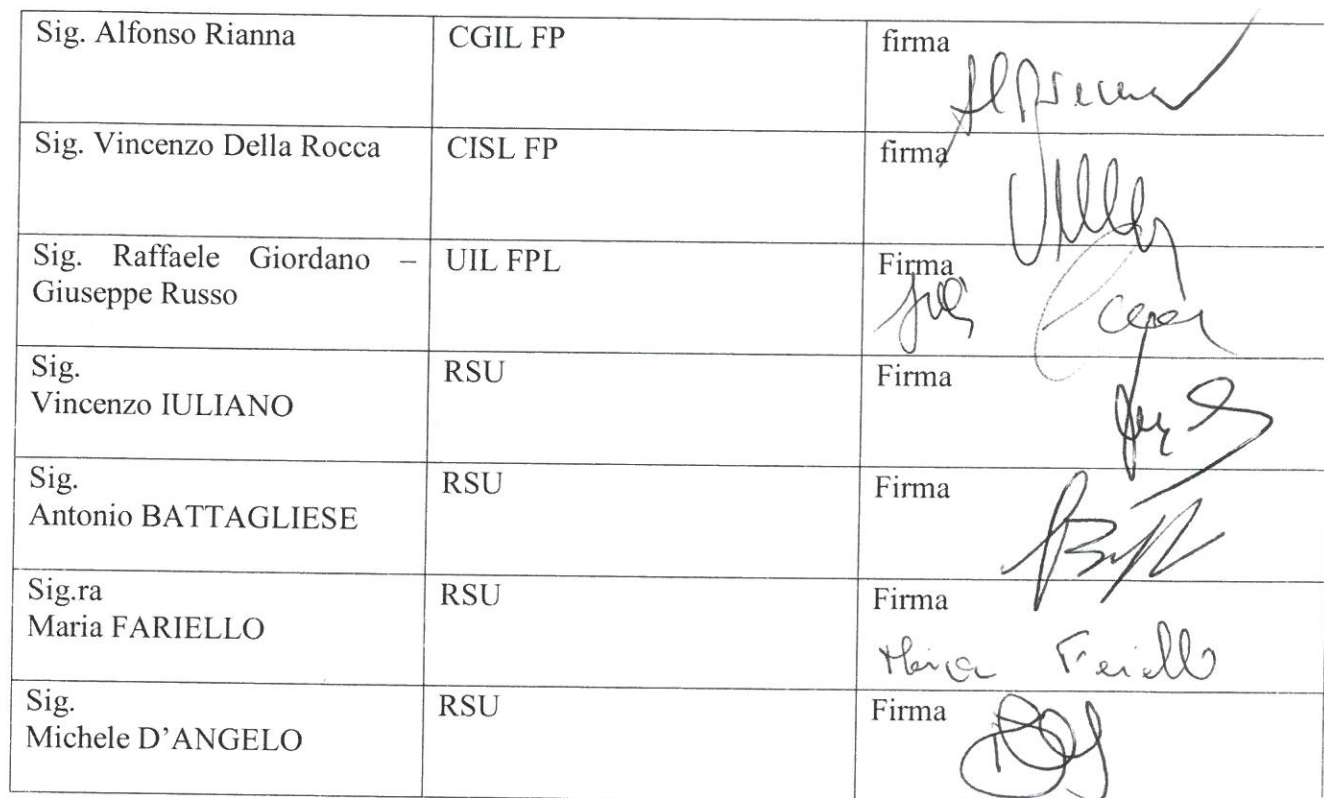 Sig. Alfonso Rianna
CGIL FP
firma
Sig. Vincenzo Della Rocca
CISL FP
firma
Sig. Raffaele Giordano –
Giuseppe Russo
UIL FPL
Firma
Sig.
Vincenzo IULIANO
RSU
Firma
Sig.
Antonio BATTAGLIESE
RSU
Firma
Sig.ra
Maria FARIELLO
RSU
Firma
Maria Fariello
Sig.
Michele D'ANGELO
RSU
Firma